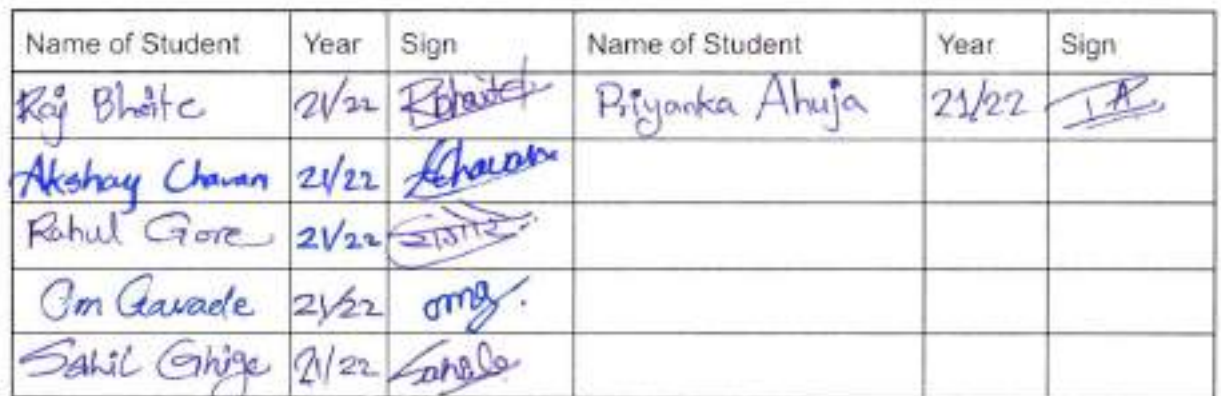 Name of Student Year Sign Name of Student Year Sign
Raj Bhaite 21/22 Rbhaite Priyanka Ahuja 21/22
Akshay Chavan 21/22 AChavan
Rahul Gore 21/22
Om Gavade 21/22 omg.
Sahil Ghige 21/22